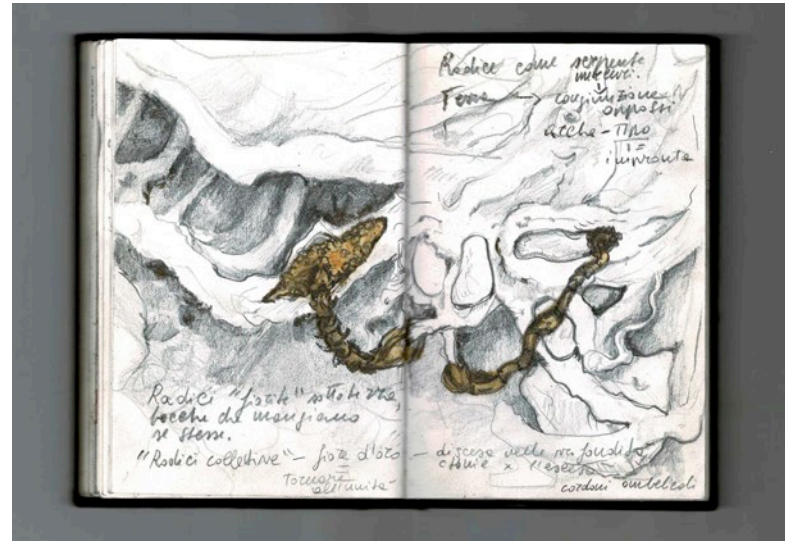 Radice come serpente
mercuri.
Terra → congiunzione
opposti
arche-Tipo
=
impronta
Radici "fiorite" sottoterra,
bocche che mangiano
se stesse.
"Radici collettive" – fiore d'oro – discesa nelle profondità
=
Tornare
all'unità
ctonie x
cordoni ombelicali